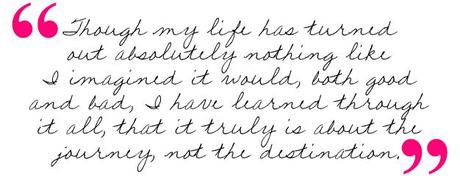 “Though my life has turned
out absolutely nothing like
I imagined it would, both good
and bad, I have learned through
it all, that it truly is about the
journey, not the destination.”